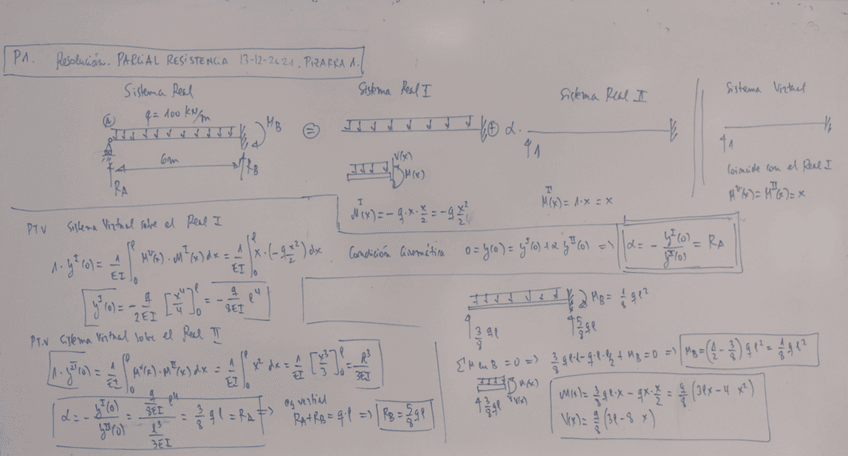 P1. Resolución. PARCIAL RESISTENCIA 13-12-2021. PIZARRA 1.
Sistema Real
q = 100 kN/m
A
M_B
6m
R_A
R_B
=
Sistema Real I
V(x)
M(x)
M^I(x) = -q·x·x/2 = -q x²/2
⊕ α·
Sistema Real II
1
M^II(x) = 1·x = x
Sistema Virtual
1
Coincide con el Real I
M^V(x) = M^II(x) = x
PTV Sistema Virtual sobre el Real I
1·y^I(0) = 1/EI ∫₀^l M^V(x)·M^I(x) dx = 1/EI ∫₀^l x·(-q x²/2) dx
y^I(0) = -q/2EI [x⁴/4]₀^l = -q/8EI l⁴
Condición Cinemática 0 = y(0) = y^I(0) + α y^II(0) => α = - y^I(0)/y^II(0) = R_A
PTV Sistema Virtual sobre el Real II
1·y^II(0) = 1/EI ∫₀^l M^V(x)·M^II(x) dx = 1/EI ∫₀^l x² dx = 1/EI [x³/3]₀^l = l³/3EI
α = - y^I(0)/y^II(0) = (q/8EI l⁴)/(l³/3EI) = 3/8 q l = R_A => eq vertical R_A + R_B = q·l => R_B = 5/8 q l
M_B = 1/8 q l²
3/8 q l
5/8 q l
∑M en B = 0 => 3/8 q l·l - q·l·l/2 + M_B = 0 => M_B = (1/2 - 3/8) q l² = 1/8 q l²
M(x)
3/8 q l
V(x)
M(x) = 3/8 q l·x - q x·x/2 = q/8 (3l x - 4 x²)
V(x) = q/8 (3l - 8 x)